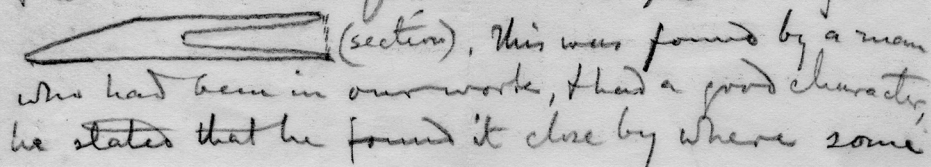 (section). This was found by a man
who had been in our work, & had a good character,
he stated that he found it close by where some